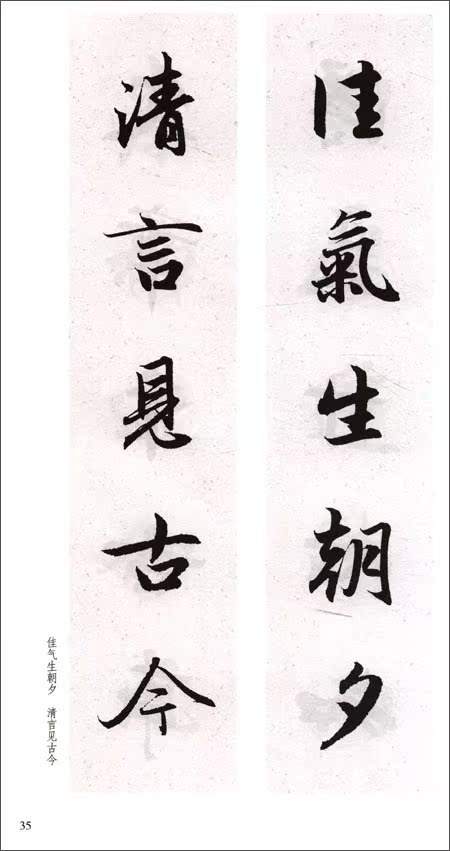 佳氣生朝夕
清言見古今
佳气生朝夕 清言见古今
35